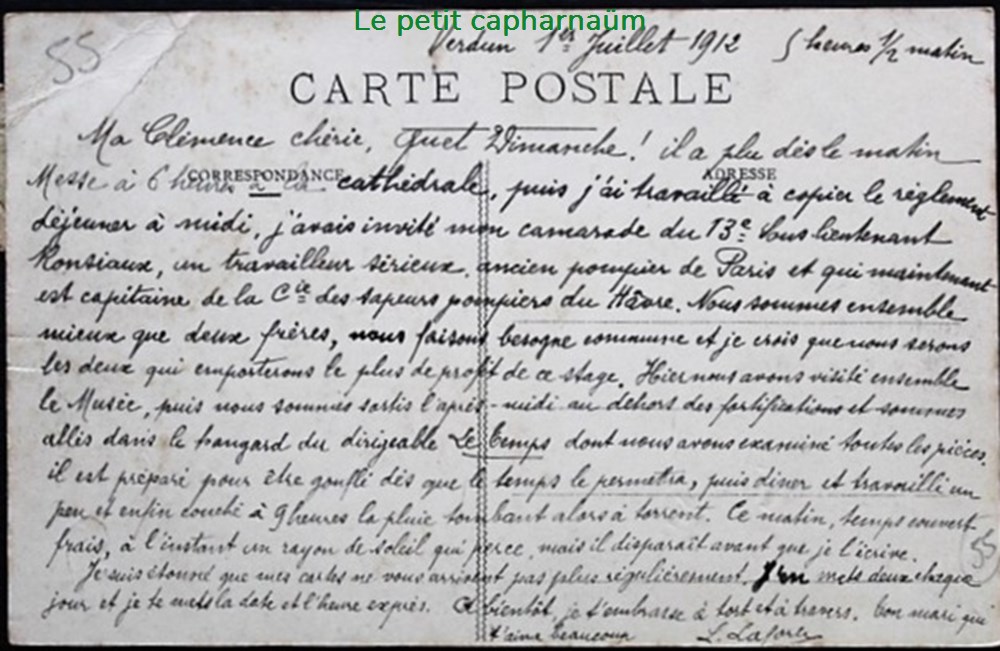 Le petit capharnaüm
55
Verdun 1er Juillet 1912 5 heures 1/2 matin
CARTE POSTALE
Ma Clémence chérie, quel Dimanche! il a plu dès le matin
CORRESPONDANCE ADRESSE
Messe à 6 heures à la cathédrale, puis j'ai travaillé à copier le règlement
déjeuner à midi, j'avais invité mon camarade du 13e Sous lieutenant
un travailleur sérieux, ancien pompier de Paris et qui maintenant
est capitaine de la Cie des sapeurs pompiers du Hâvre. Nous sommes ensemble
mieux que deux frères, nous faisons besogne commune et je crois que nous serons
les deux qui emporterons le plus de profit de ce stage. Hier nous avons visité ensemble
le Musée, puis nous sommes sortis l'après-midi au dehors des fortifications et sommes
allés dans le hangard du dirigeable Le Temps dont nous avons examiné toutes les pièces.
il est préparé pour être gonflé dès que le temps le permettra, puis diner et travaillé un
peu et enfin couché à 9 heures la pluie tombant alors à torrent. Ce matin, temps couvert
frais, à l'instant un rayon de soleil qui perce, mais il disparaît avant que je l'écrive.
55
Je suis étonné que mes cartes ne vous arrivent pas plus régulièrement. J'en mets deux chaque
jour et je te mets la date et l'heure exprès. A bientôt, je t'embrasse à tort et à travers. Ton mari qui
t'aime beaucoup